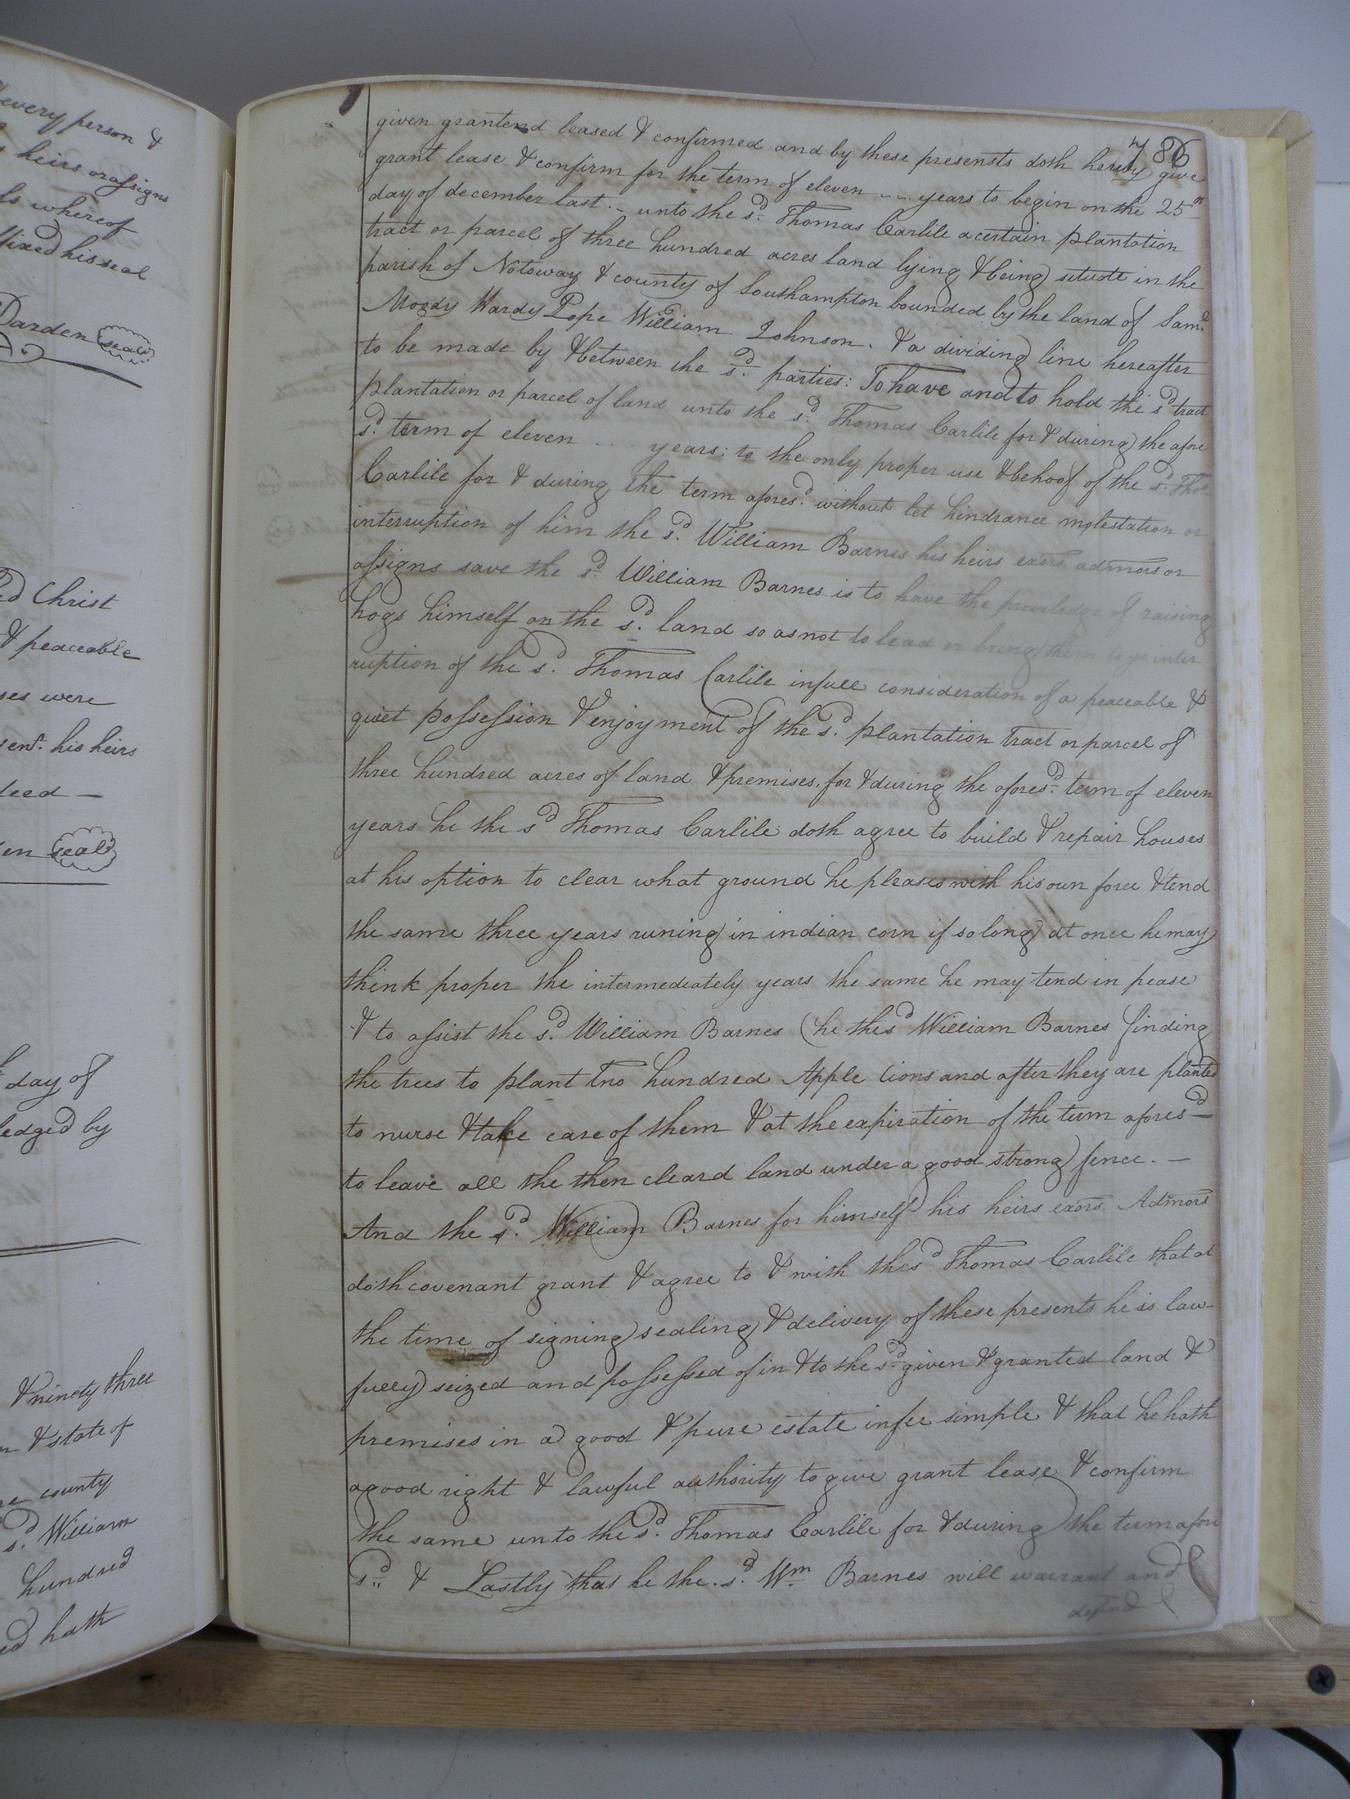 every person &
heirs or assigns
whereof
fixed his seal
Darden seal
Christ
& peaceable
ses were
his heirs
deed —
en seal
day of
ledged by
& ninety three
& state of
county
sd. William
hundred
hath
786
given grantend leased & confirmed and by these presensts doth hereby give
grant lease & confirm for the term of eleven -- years to begin on the 25th
day of december last .- unto the sd. Thomas Carlile a certain plantation
tract or parcel of three hundred acres land lying & being situate in the
parish of Notoway & county of Southampton bounded by the land of Saml.
Moody Hardy Pope William Johnson. & a dividing line hereafter
to be made by & between the sd. parties: To have and to hold the sd. tract
plantation or parcel of land unto the sd. Thomas Carlile for & during the afore
sd. term of eleven --- years; to the only proper use & behoof of the sd. Thos.
Carlile for & during the term aforesd. without let hindrance molestation or
interruption of him the sd. William Barnes his heirs exors. admors or
assigns save the sd. William Barnes is to have the priviledge of raising
hogs himself on the sd. land so as not to lead or bring them to inter
ruption of the sd. Thomas Carlile in full consideration of a peaceable &
quiet possession & enjoyment of the sd. plantation tract or parcel of
three hundred acres of land & premises. for & during the aforesd. term of eleven
years he the sd Thomas Carlile doth agree to build & repair houses
at his option to clear what ground he pleases with his own force & tend
the same three years runing in indian corn if so long at once he may
think proper the intermediately years the same he may tend in pease
& to assist the sd. William Barnes (he the sd William Barnes finding
the trees to plant two hundred Apple cions and after they are planted
to nurse & take care of them & at the expiration of the term aforesd —
to leave all the then cleard land under a good strong fence. —
And the sd. William Barnes for himself his heirs exors. Admors
doth covenant grant & agree to & with the sd Thomas Carlile that at
the time of signing sealing & delivery of these presents he is law-
fully seized and possessed of in & to the sd. given & granted land &
premises in a good & pure estate in fee simple & that he hath
a good right & lawful authority to give grant lease & confirm
the same unto the sd. Thomas Carlile for & during the term afore
sd. & Lastly that he the. sd. Wm. Barnes will warrant and
defend